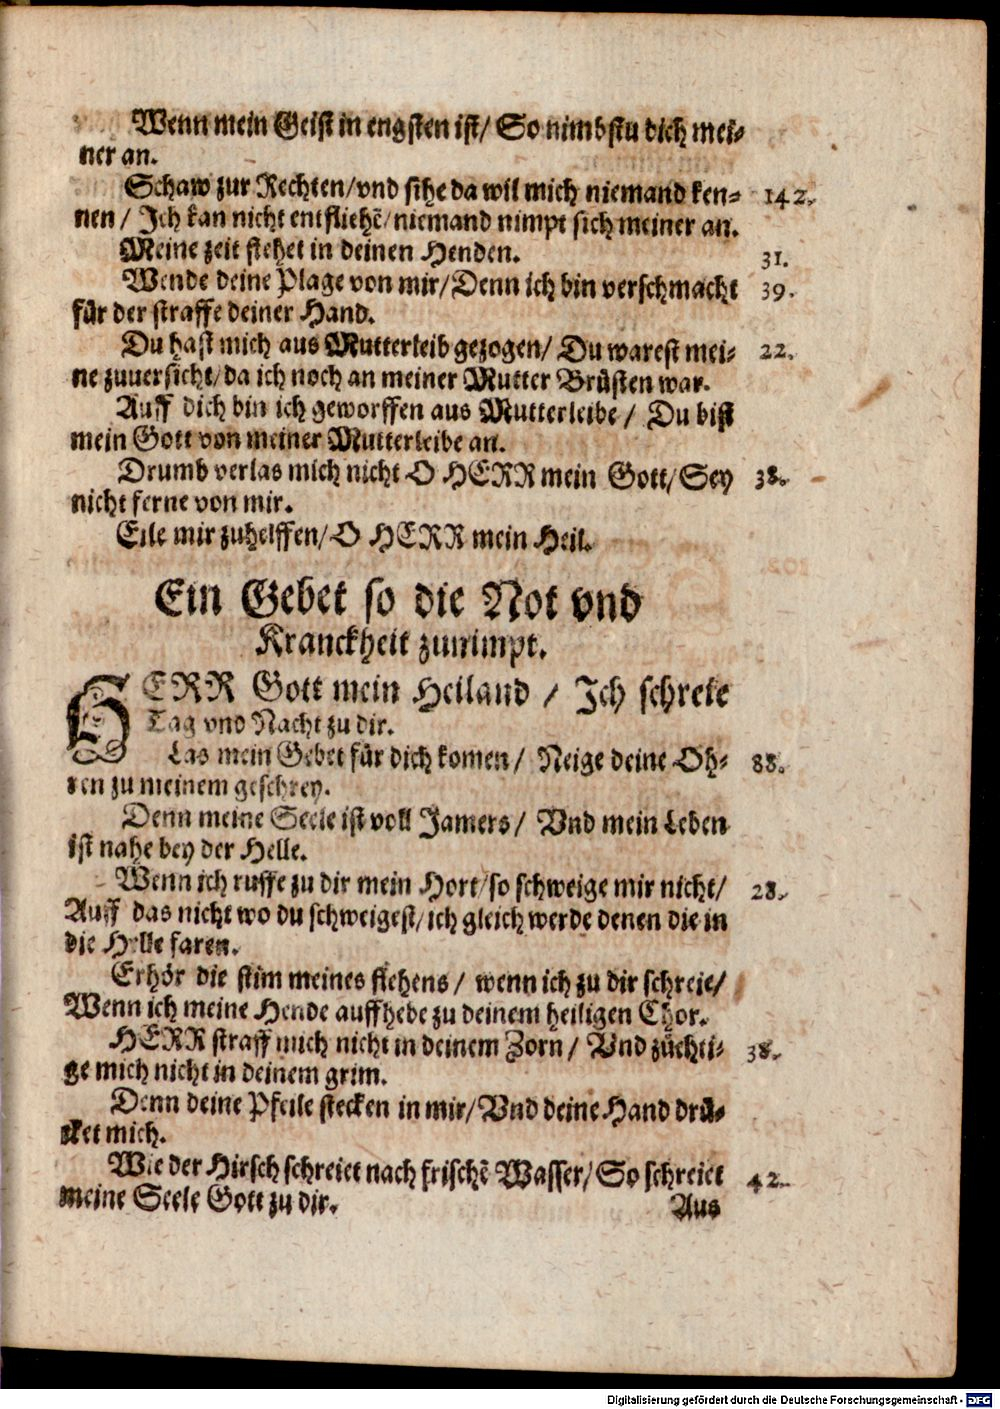 Wenn mein Geist in engsten ist/ So nimbstu dich mei-
ner an.
Schaw zur Rechten/vnd sihe da wil mich niemand ken- 142.
nen/ Ich kan nicht entfliehẽ/niemand nimpt sich meiner an.
Meine zeit stehet in deinen Henden. 31.
Wende deine Plage von mir/Denn ich bin verschmacht 39.
für der straffe deiner Hand.
Du hast mich aus Mutterleib gezogen/ Du warest mei- 22.
ne zuuersicht/da ich noch an meiner Mutter Brüsten war.
Auff dich bin ich geworffen aus Mutterleibe/ Du bist
mein Gott von meiner Mutterleibe an.
Drumb verlas mich nicht O HERR mein Gott/Sey 38.
nicht ferne von mir.
Eile mir zuhelffen/O HERR mein Heil.
Ein Gebet so die Not vnd
Kranckheit zunimpt.
HERR Gott mein Heiland / Ich schreie
Tag vnd Nacht zu dir.
Las mein Gebet für dich komen/ Neige deine Oh- 88.
ren zu meinem geschrey.
Denn meine Seele ist voll Jamers/ Vnd mein Leben
ist nahe bey der Helle.
Wenn ich ruffe zu dir mein Hort/so schweige mir nicht/ 28.
Auff das nicht wo du schweigest/ich gleich werde denen die in
die Helle faren.
Erhör die stim meines flehens/ wenn ich zu dir schreie/
Wenn ich meine Hende auffhebe zu deinem heiligen Chor.
HERR straff mich nicht in deinem Zorn/ Vnd züchti- 38.
ge mich nicht in deinem grim.
Denn deine Pfeile stecken in mir/Vnd deine Hand drü-
cket mich.
Wie der Hirsch schreiet nach frischẽ Wasser/So schreiet 42.
meine Seele Gott zu dir.
Aus
Digitalisierung gefördert durch die Deutsche Forschungsgemeinschaft - DFG